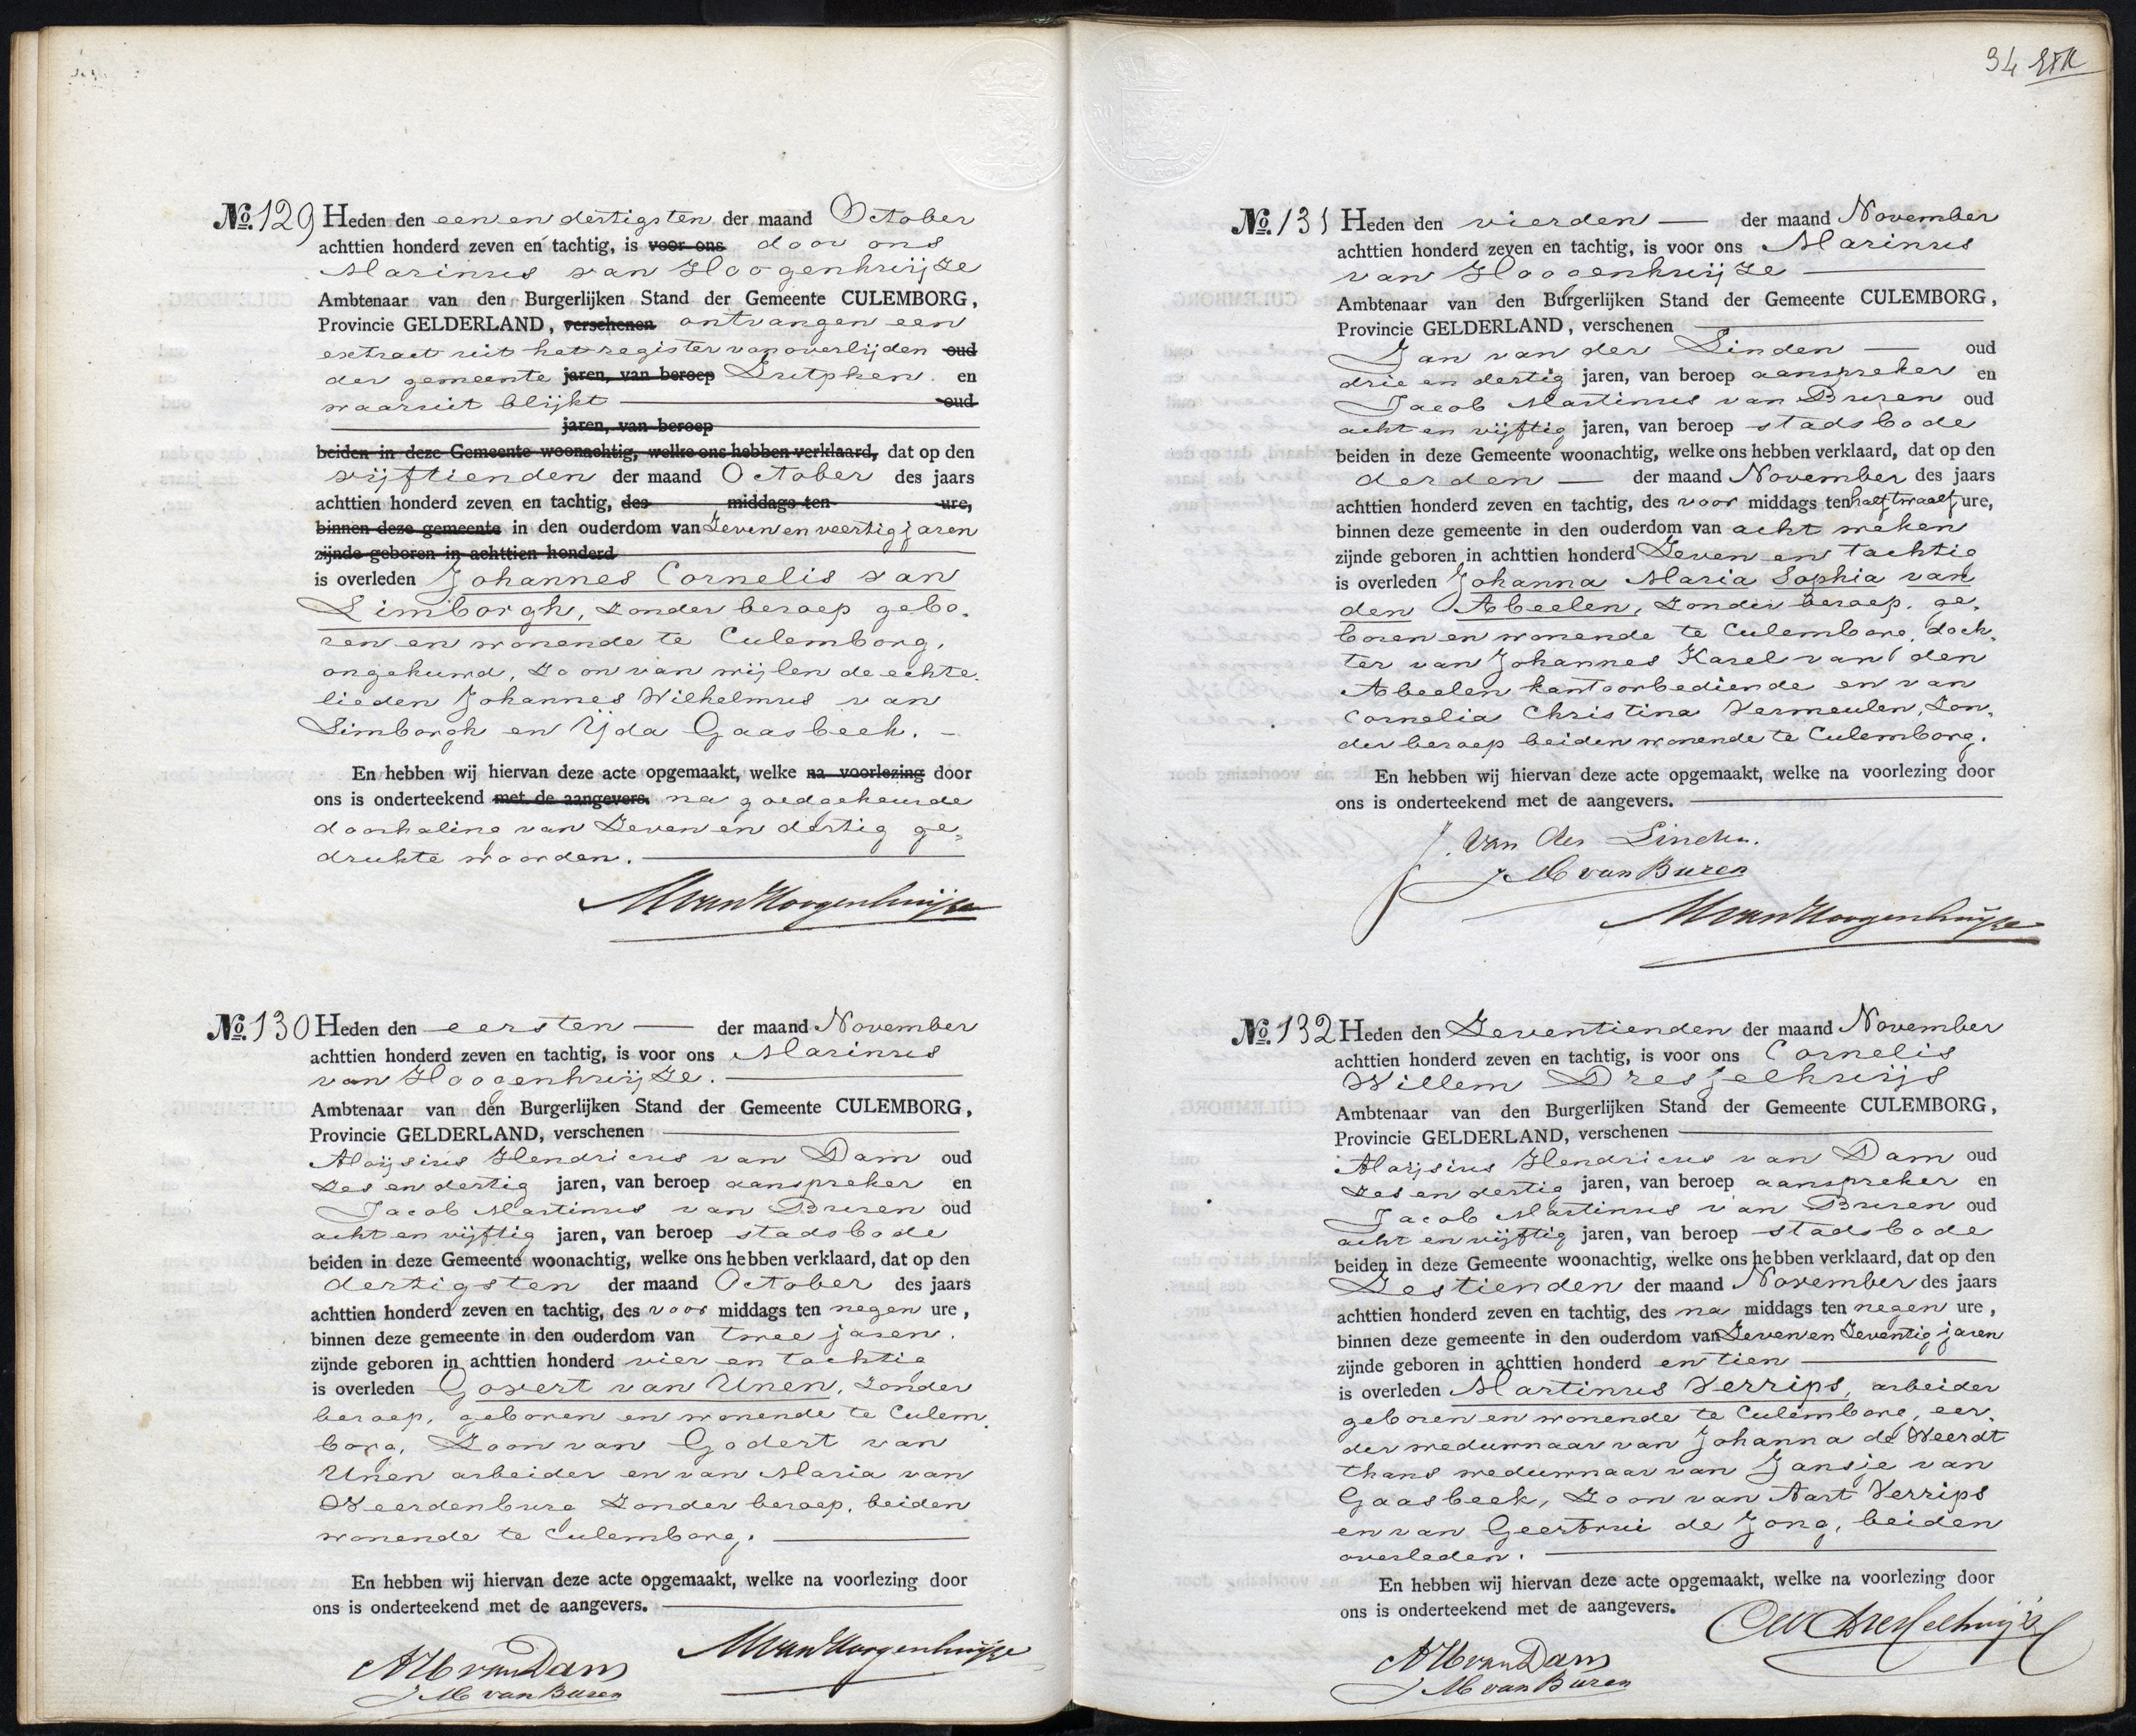 No. 129 Heden den een en dertigsten der maand October
achttien honderd zeven en tachtig, is voor ons door ons
Marinus van Hoogenhuijze
Ambtenaar van den Burgerlijken Stand der Gemeente CULEMBORG,
Provincie GELDERLAND, verschenen ontvangen een
extract uit het register van overlijden oud
der gemeente jaren, van beroep Zutphen en
waaruit blijkt oud
jaren, van beroep
beiden in deze Gemeente woonachtig, welke ons hebben verklaard, dat op den
vijftienden der maand October des jaars
achttien honderd zeven en tachtig, des middags ten ure,
binnen deze gemeente in den ouderdom van Zeven en veertig jaren
zijnde geboren in achttien honderd
is overleden Johannes Cornelis van
Limborgh, zonder beroep gebo-
ren en wonende te Culemborg,
ongehuwd, Zoon van wijlen de echte-
lieden Johannes Wilhelmus van
Limborgh en Yda Gaasbeek. -
En hebben wij hiervan deze acte opgemaakt, welke na voorlezing door
ons is onderteekend met de aangevers. na goedgekeurde
doorhaling van Zeven en dertig ge-
drukte woorden.
M van Hoogenhuijze
No. 130 Heden den eersten der maand November
achttien honderd zeven en tachtig, is voor ons Marinus
van Hoogenhuijze.
Ambtenaar van den Burgerlijken Stand der Gemeente CULEMBORG,
Provincie GELDERLAND, verschenen
Aloijsius Hendricus van Dam oud
Zes en dertig jaren, van beroep aanspreker en
Jacob Martinus van Buren oud
acht en vijftig jaren, van beroep stadsbode
beiden in deze Gemeente woonachtig, welke ons hebben verklaard, dat op den
dertigsten der maand October des jaars
achttien honderd zeven en tachtig, des voor middags ten negen ure,
binnen deze gemeente in den ouderdom van twee jaren.
zijnde geboren in achttien honderd vier en tachtig
is overleden Govert van Unen, zonder
beroep, geboren en wonende te Culem-
borg, Zoon van Godert van
Unen arbeider en van Maria van
Weerdenburg Zonder beroep, beiden
wonende te Culemborg.
En hebben wij hiervan deze acte opgemaakt, welke na voorlezing door
ons is onderteekend met de aangevers.
M van Hoogenhuijze
AH van Dam
J M van Buren
34
No. 131 Heden den vierden der maand November
achttien honderd zeven en tachtig, is voor ons Marinus
van Hoogenhuijze
Ambtenaar van den Burgerlijken Stand der Gemeente CULEMBORG,
Provincie GELDERLAND, verschenen
Jan van der Linden oud
drie en dertig jaren, van beroep aanspreker en
Jacob Martinus van Buren oud
acht en vijftig jaren, van beroep stadsbode
beiden in deze Gemeente woonachtig, welke ons hebben verklaard, dat op den
derden der maand November des jaars
achttien honderd zeven en tachtig, des voor middags ten half twaalf ure,
binnen deze gemeente in den ouderdom van acht weken
zijnde geboren in achttien honderd Zeven en tachtig
is overleden Johanna Maria Sophia van
den Abeelen, zonder beroep, ge-
boren en wonende te Culemborg, doch-
ter van Johannes Karel van den
Abeelen kantoorbediende en van
Cornelia Christina Vermeulen, Zon-
der beroep beiden wonende te Culemborg.
En hebben wij hiervan deze acte opgemaakt, welke na voorlezing door
ons is onderteekend met de aangevers.
J. van der Linden.
J M van Buren
M van Hoogenhuijze
No. 132 Heden den Zeventienden der maand November
achttien honderd zeven en tachtig, is voor ons Cornelis
Willem Dresselhuijs
Ambtenaar van den Burgerlijken Stand der Gemeente CULEMBORG,
Provincie GELDERLAND, verschenen
Aloijsius Hendricus van Dam oud
Zes en dertig jaren, van beroep aanspreker en
Jacob Martinus van Buren oud
acht en vijftig jaren, van beroep stadsbode
beiden in deze Gemeente woonachtig, welke ons hebben verklaard, dat op den
Zestienden der maand November des jaars
achttien honderd zeven en tachtig, des na middags ten negen ure,
binnen deze gemeente in den ouderdom van Zeven en Zeventig jaren
zijnde geboren in achttien honderd en tien
is overleden Martinus Verrips, arbeider
geboren en wonende te Culemborg, eer-
der weduwnaar van Johanna de Weerdt
thans weduwnaar van Jansje van
Gaasbeek, Zoon van Aart Verrips
en van Geertrui de Jong, beiden
overleden.
En hebben wij hiervan deze acte opgemaakt, welke na voorlezing door
ons is onderteekend met de aangevers.
CW Dresselhuijs
AH van Dam
J M van Buren